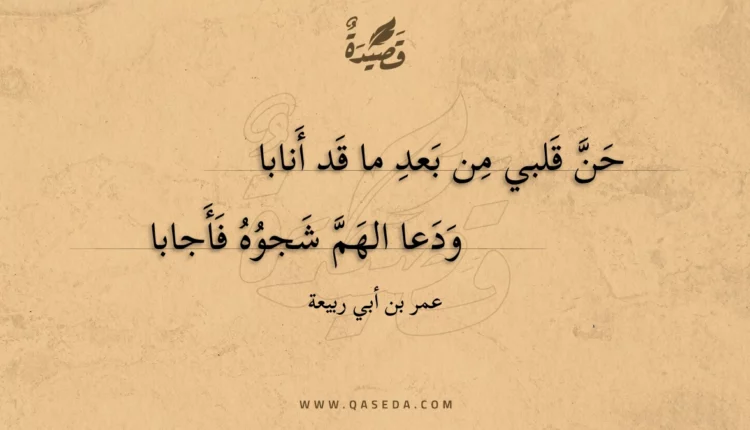 قَصِيْدَةٌ
حَنَّ قَلبي مِن بَعدِ ما قَد أَنابا
وَدَعا الهَمَّ شَجوُهُ فَأَجابا
عمر بن أبي ربيعة
WWW.QASEDA.COM